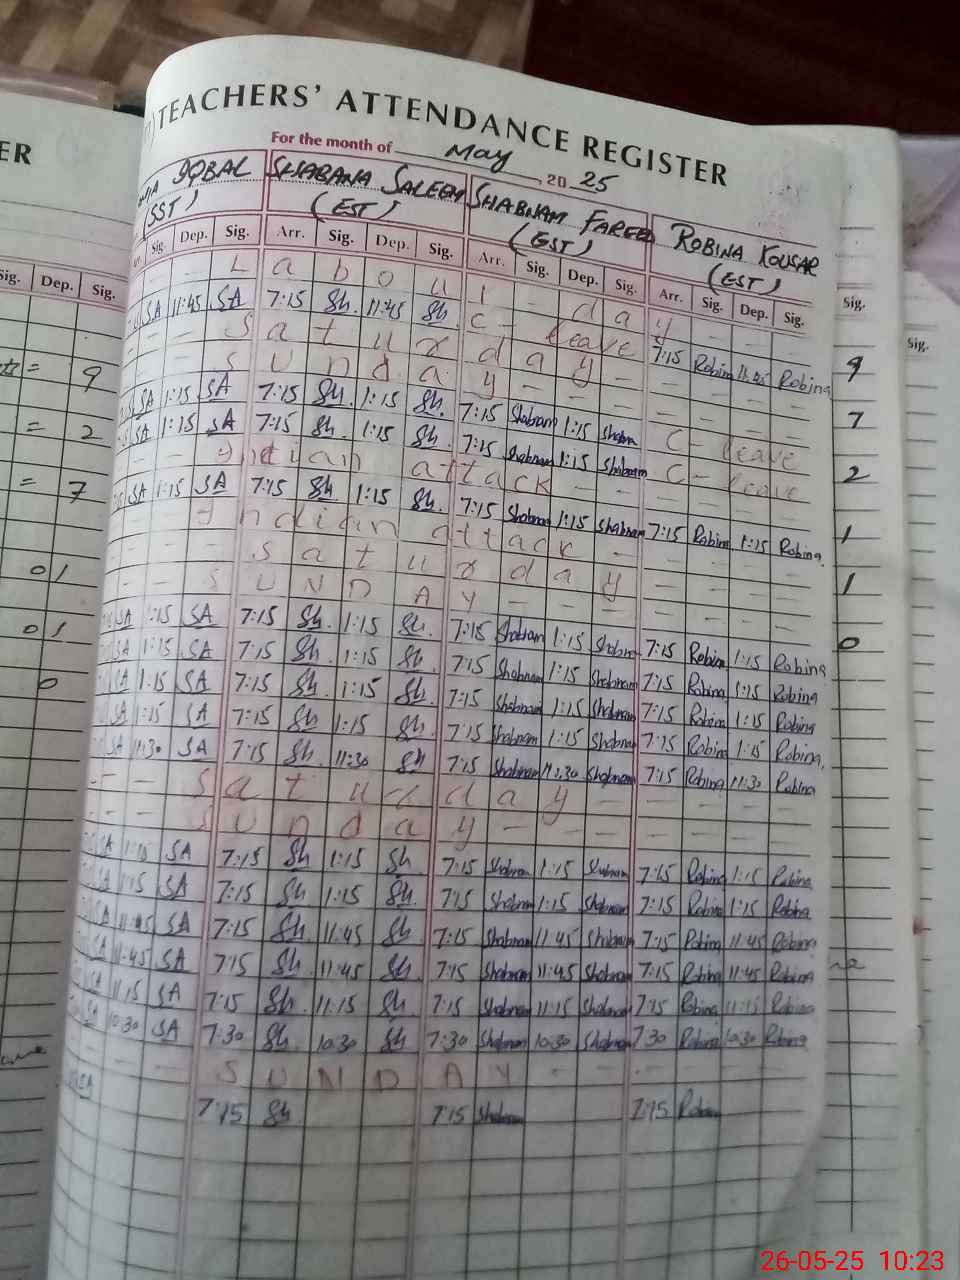 ER
TEACHERS' ATTENDANCE REGISTER
For the month of May, 20 25
IQBAL SHABANA SALEEM SHABNAM FAREED ROBINA KOUSAR
(SST) (EST) (EST) (EST)
Sig. Dep. Sig. Sig. Dep. Sig. Arr. Sig. Dep. Sig. Arr. Sig. Dep. Sig. Arr. Sig. Dep. Sig. Sig. Sig.
- - L a b o u r - d a y
SA 11:45 SA 7:15 Sh. 11:45 Sh. C - leave 7:15 Robina 11:45 Robina
S a t u r d a y - - - - -
S u n d a y - - - - -
SA 1:15 SA 7:15 Sh. 1:15 Sh. 7:15 Shabnam 1:15 Shabnam C - leave
SA 1:15 SA 7:15 Sh. 1:15 Sh. 7:15 Shabnam 1:15 Shabnam C - leave
Indian attack - - - -
SA 1:15 SA 7:15 Sh 1:15 Sh. 7:15 Shabnam 1:15 Shabnam 7:15 Robina 1:15 Robina
Indian attack -
S a t u r d a y
S U N D A Y - - -
SA 1:15 SA 7:15 Sh. 1:15 Sh. 7:15 Shabnam 1:15 Shabnam 7:15 Robina 1:15 Robina
SA 1:15 SA 7:15 Sh. 1:15 Sh. 7:15 Shabnam 1:15 Shabnam 7:15 Robina 1:15 Robina
SA 1:15 SA 7:15 Sh. 1:15 Sh. 7:15 Shabnam 1:15 Shabnam 7:15 Robina 1:15 Robina
SA 1:15 SA 7:15 Sh 1:15 Sh. 7:15 Shabnam 1:15 Shabnam 7:15 Robina 1:15 Robina
SA 11:30 SA 7:15 Sh. 11:30 Sh 7:15 Shabnam 11:30 Shabnam 7:15 Robina 11:30 Robina
- - - S a t u r d a y -
S u n d a y - - -
SA 1:15 SA 7:15 Sh 1:15 Sh 7:15 Shabnam 1:15 Shabnam 7:15 Robina 1:15 Robina
SA 1:15 SA 7:15 Sh 1:15 Sh. 7:15 Shabnam 1:15 Shabnam 7:15 Robina 1:15 Robina
SA 11:45 SA 7:15 Sh. 11:45 Sh 7:15 Shabnam 11:45 Shabnam 7:15 Robina 11:45 Robina
SA 11:45 SA 7:15 Sh. 11:45 Sh 7:15 Shabnam 11:45 Shabnam 7:15 Robina 11:45 Robina
SA 11:15 SA 7:15 Sh 11:15 Sh. 7:15 Shabnam 11:15 Shabnam 7:15 Robina 11:15 Robina
SA 10:30 SA 7:30 Sh. 10:30 Sh 7:30 Shabnam 10:30 Shabnam 7:30 Robina 10:30 Robina
- - - S U N D A Y - - -
SA 7:15 Sh. 7:15 Shabnam 7:15 Robina
= 9
= 2
= 7
01
01
0
9
7
2
1
1
0
26-05-25 10:23